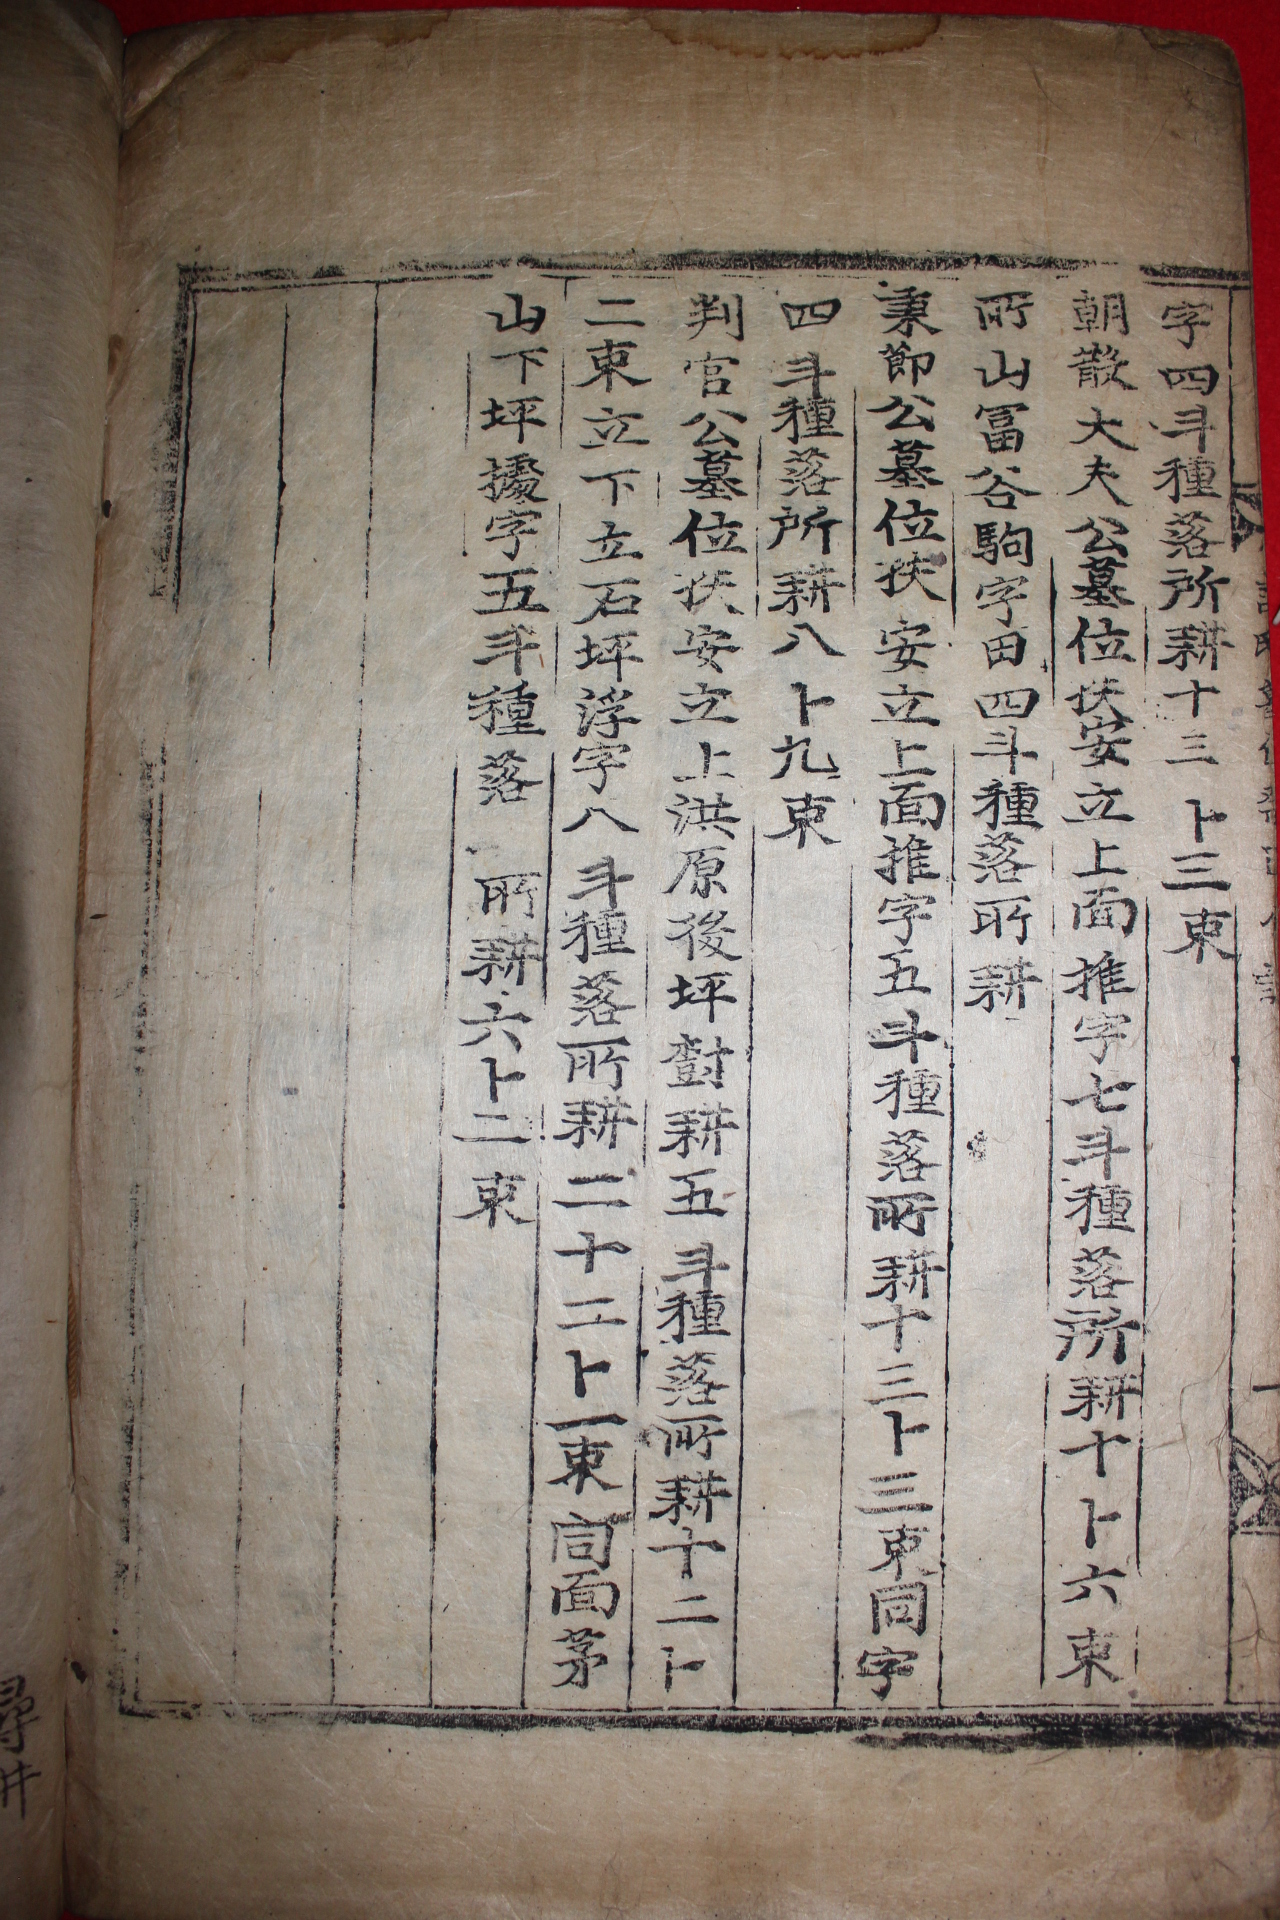 字四斗種落所耕十三卜三束
朝散大夫公墓位扶安立上面推字七斗種落所耕十卜六束
所山冨谷駒字田四斗種落所耕
秉節公墓位扶安立上面推字五斗種落所耕十三卜三束同字
四斗種落所耕八卜九束
判官公墓位扶安立上洪原後坪對耕五斗種落所耕十二卜
二束立下立石坪浮字八斗種落所耕二十二卜一束同面茅
山下坪據字五斗種落所耕六卜二束
尋井